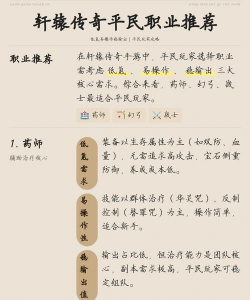 轩辕传奇平民职业推荐
职业推荐
在轩辕传奇手游中，平民玩家选择职业
需考虑 低氪 、 易操作 、 稳输出 三大
核心需求。综合来看，药师、幻弓、战
士最适合平民玩家。
药师
幻弓
战士
1. 药师
辅助治疗核心
低氪需求
装备以生存属性为主（如双防、血
量），无需追求高攻击，宝石侧重
防御，养成成本低。
易操作性
技能以群体治疗（华灵咒）、反制
控制（替罪咒）为主，操作简单，
适合新手。
稳输出值
输出占比低，但治疗能力是团队核
心，副本需求极高，平民玩家可稳
定组队。